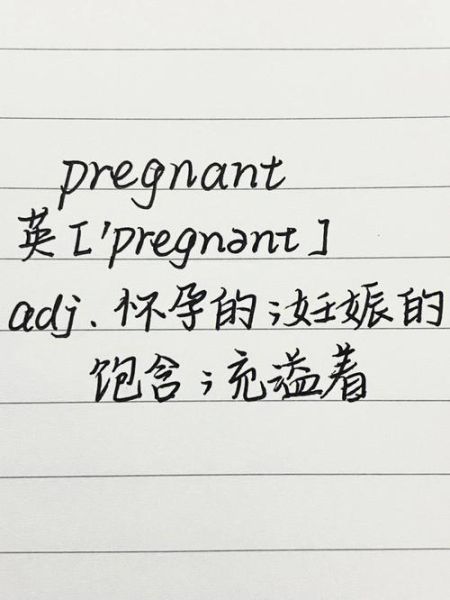 pregnant
英['pregnənt]
adj.怀孕的;妊娠的
饱含;充溢着